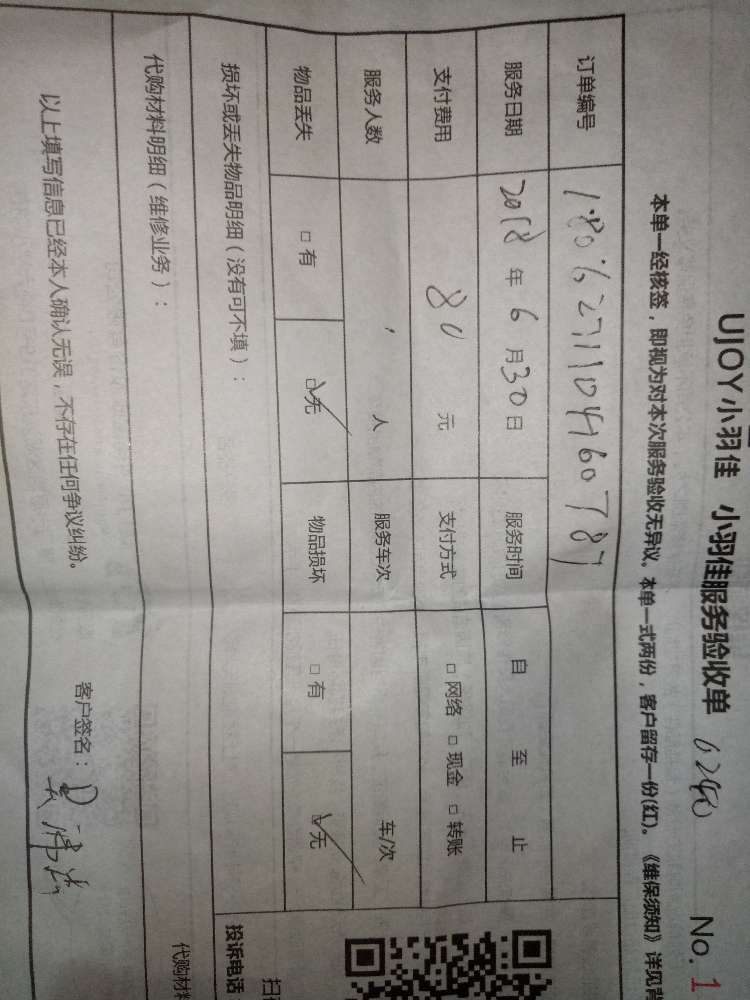 UJOY小羽佳 小羽佳服务验收单 No.1
本单一经核签，即视为对本次服务验收无异议。本单一式两份，客户留存一份(红)。《维保须知》详见背
订单编号
服务日期 2018 年 6 月 30 日 服务时间 自 至 止
支付费用 80 元 支付方式 □ 网络 □ 现金 □ 转账
服务人数 人 服务车次 车/次
物品丢失 □ 有 ☑ 无 物品损坏 □ 有 ☑ 无
损坏或丢失物品明细（没有可不填）：
投诉电话
代购材料明细（维修业务）：
代购材料
以上填写信息已经本人确认无误，不存在任何争议纠纷。 客户签名：